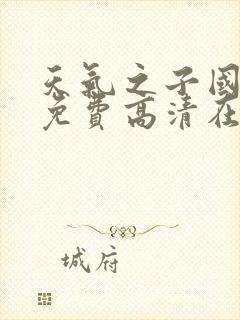 天氣之子國
免費高清在
城府